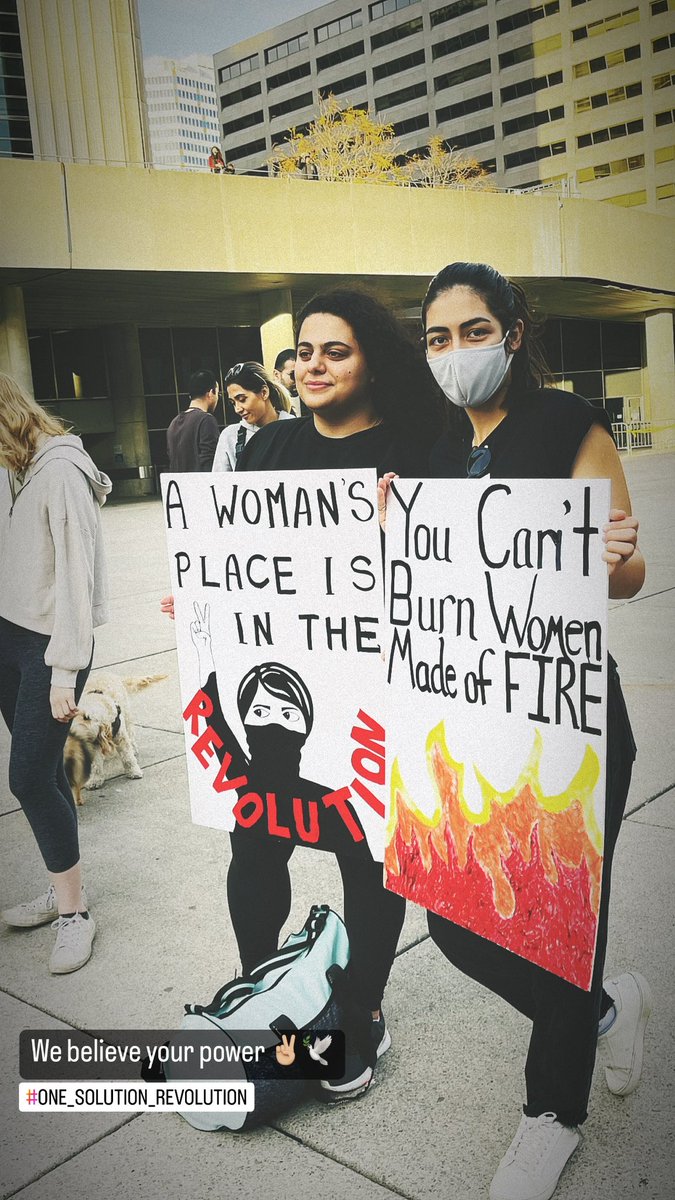 A WOMAN'S
PLACE IS
IN THE
REVOLUTION
You Can't
Burn Women
Made of FIRE
We believe your power ✌🏼🕊️
#ONE_SOLUTION_REVOLUTION